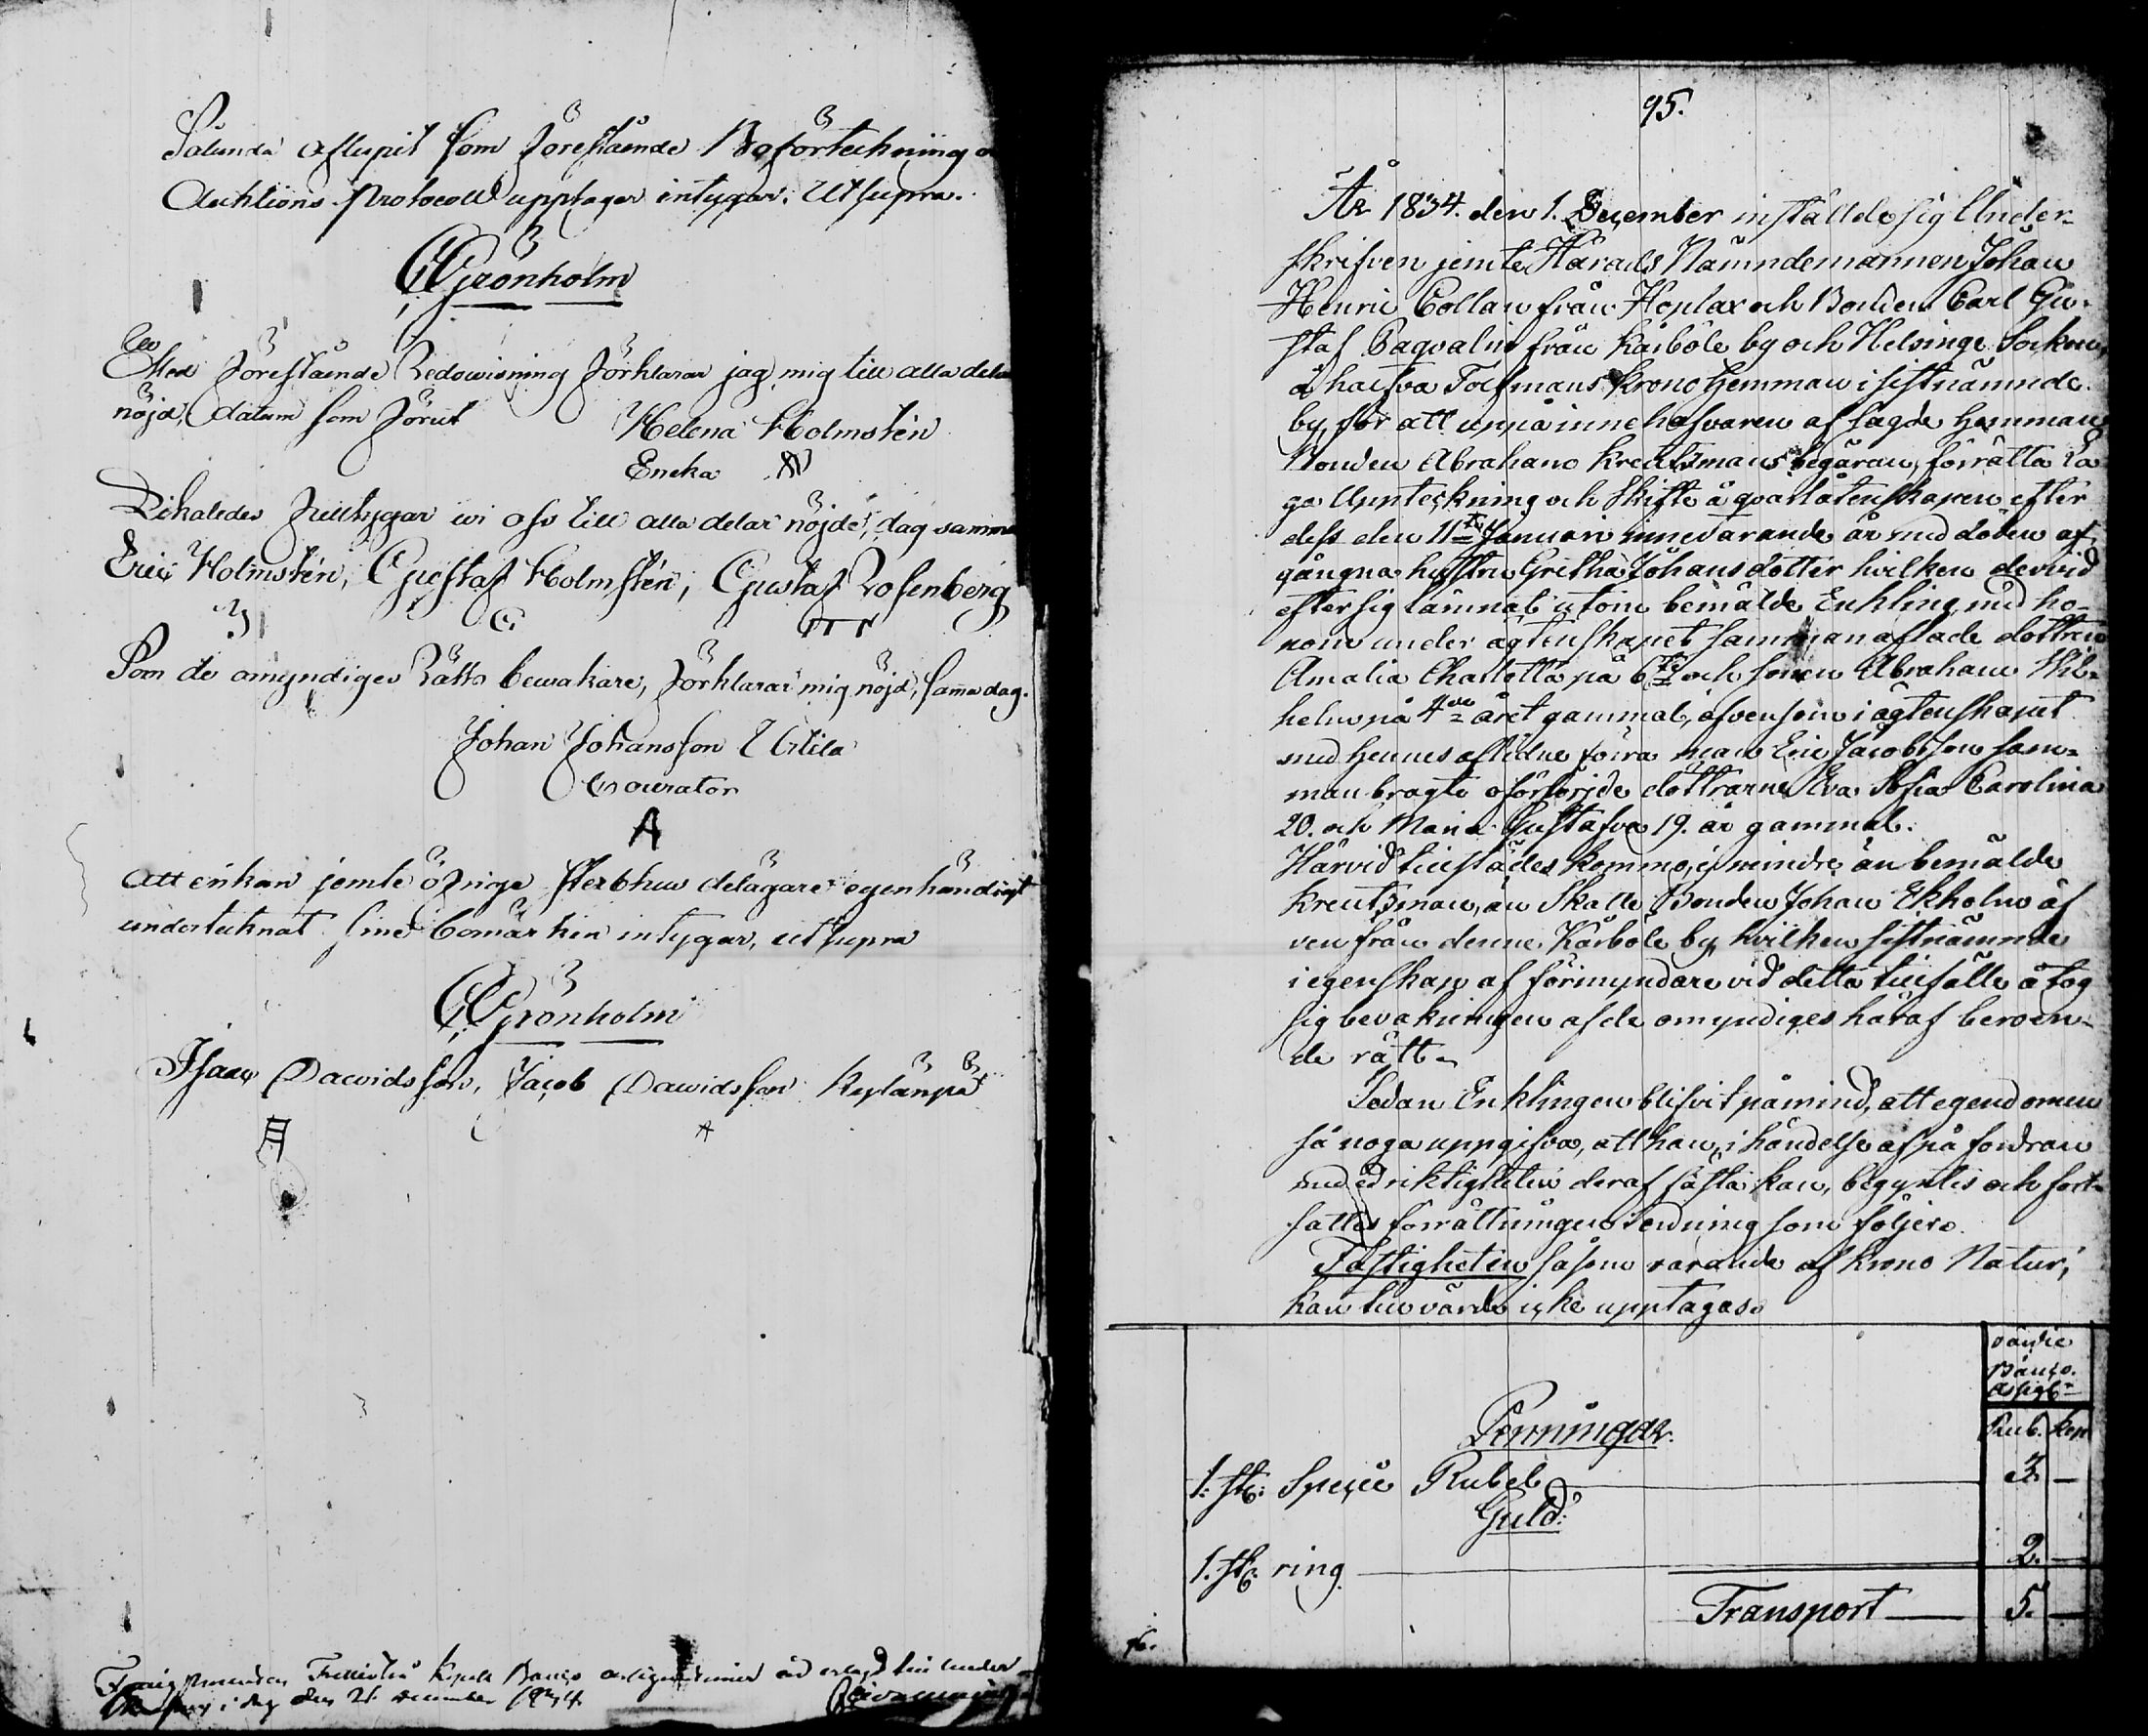 Sålunda aflupit som förestående Boförteckning
Auktions Protocoll upptager intygar. Ut supra.
Grönholm
Med förestående Redowisning förklarar jag mig till alla dela
nöjd, datum som förut Helena Holmstén
Encka
Likaledes fulltygar wi oss till alla delar nöjde, dag samma
Eric Holmstén, Gustaf Holmstén, Gustaf Rosenberg
Som de omyndiges Rätts bewakare, förklarar mig nöjd, samma dag.
Johan Johansson Uttila
Courator
A
Att enkan jemte öfrige sterbhus delägare egenhändigt
undertecknat sine bomärken intygar, ut supra
Grönholm
Isaac Dawidsson, Jacob Dawidsson
Banco
i dag den 21 December 1834
95.
År 1834. den 1. December inställde sig Under-
skrifven jemte Härads Nämndemannen Johan
Henric Collan från Hoplax och Bonden Carl Gu-
staf Baqvalin från Kårböle by och Helsinge Socken,
å halfva Tolfmans Krono Hemman i sistnämnde
by, för att uppå innehafvaren af sagde Hemman
Bonden Abraham Kreutzmans begäran, förrätta La-
ga Uppteckning och Skifte å qvarlåtenskapen efter
dess den 11te Januari innevarande år med döden af-
gångna hustru Gretha Johansdotter hvilken dervid
efter sig lämnat utom bemälde Enkling, med ho-
nom under ägtenskapet samman aflade dottren
Amalia Charlotta på 6te och sonen Abraham Wil-
helm på 4de året gammal, äfvensom i ägtenskapet
med hennes aflidne förra man Eric Jacobsson sam-
manbragte oförsörjde döttrarne Eva Sofia Carolina
20. och Maria Gustafva 19. år gammal.
Härvid tillstädes kommo, ej mindre än bemälde
Kreutzman, än Skatte Bonden Johan Ekholm äf-
ven från denne Kårböle by, hvilken sistnämnde
i egenskap af förmyndare vid detta tillfälle åtog
sig bevakningen af de omyndiges häraf beroen-
de rätt.
Sedan Enklingen blifvit påmind, att egendomen
så noga uppgifva, att han, i händelse af på fordran
med ed riktigheten deraf fästa kan, begyntes och fort-
sattes förrättningen i ordning som följer.
Fastigheten såsom varande af Krono Natur,
kan till värde icke upptagas.
värdie
Banco.
assigt.
Rub. Kop
Penningar.
1. st: Specie Rubel 3. —
Guld.
1. st: ring 2. —
Transport 5. —